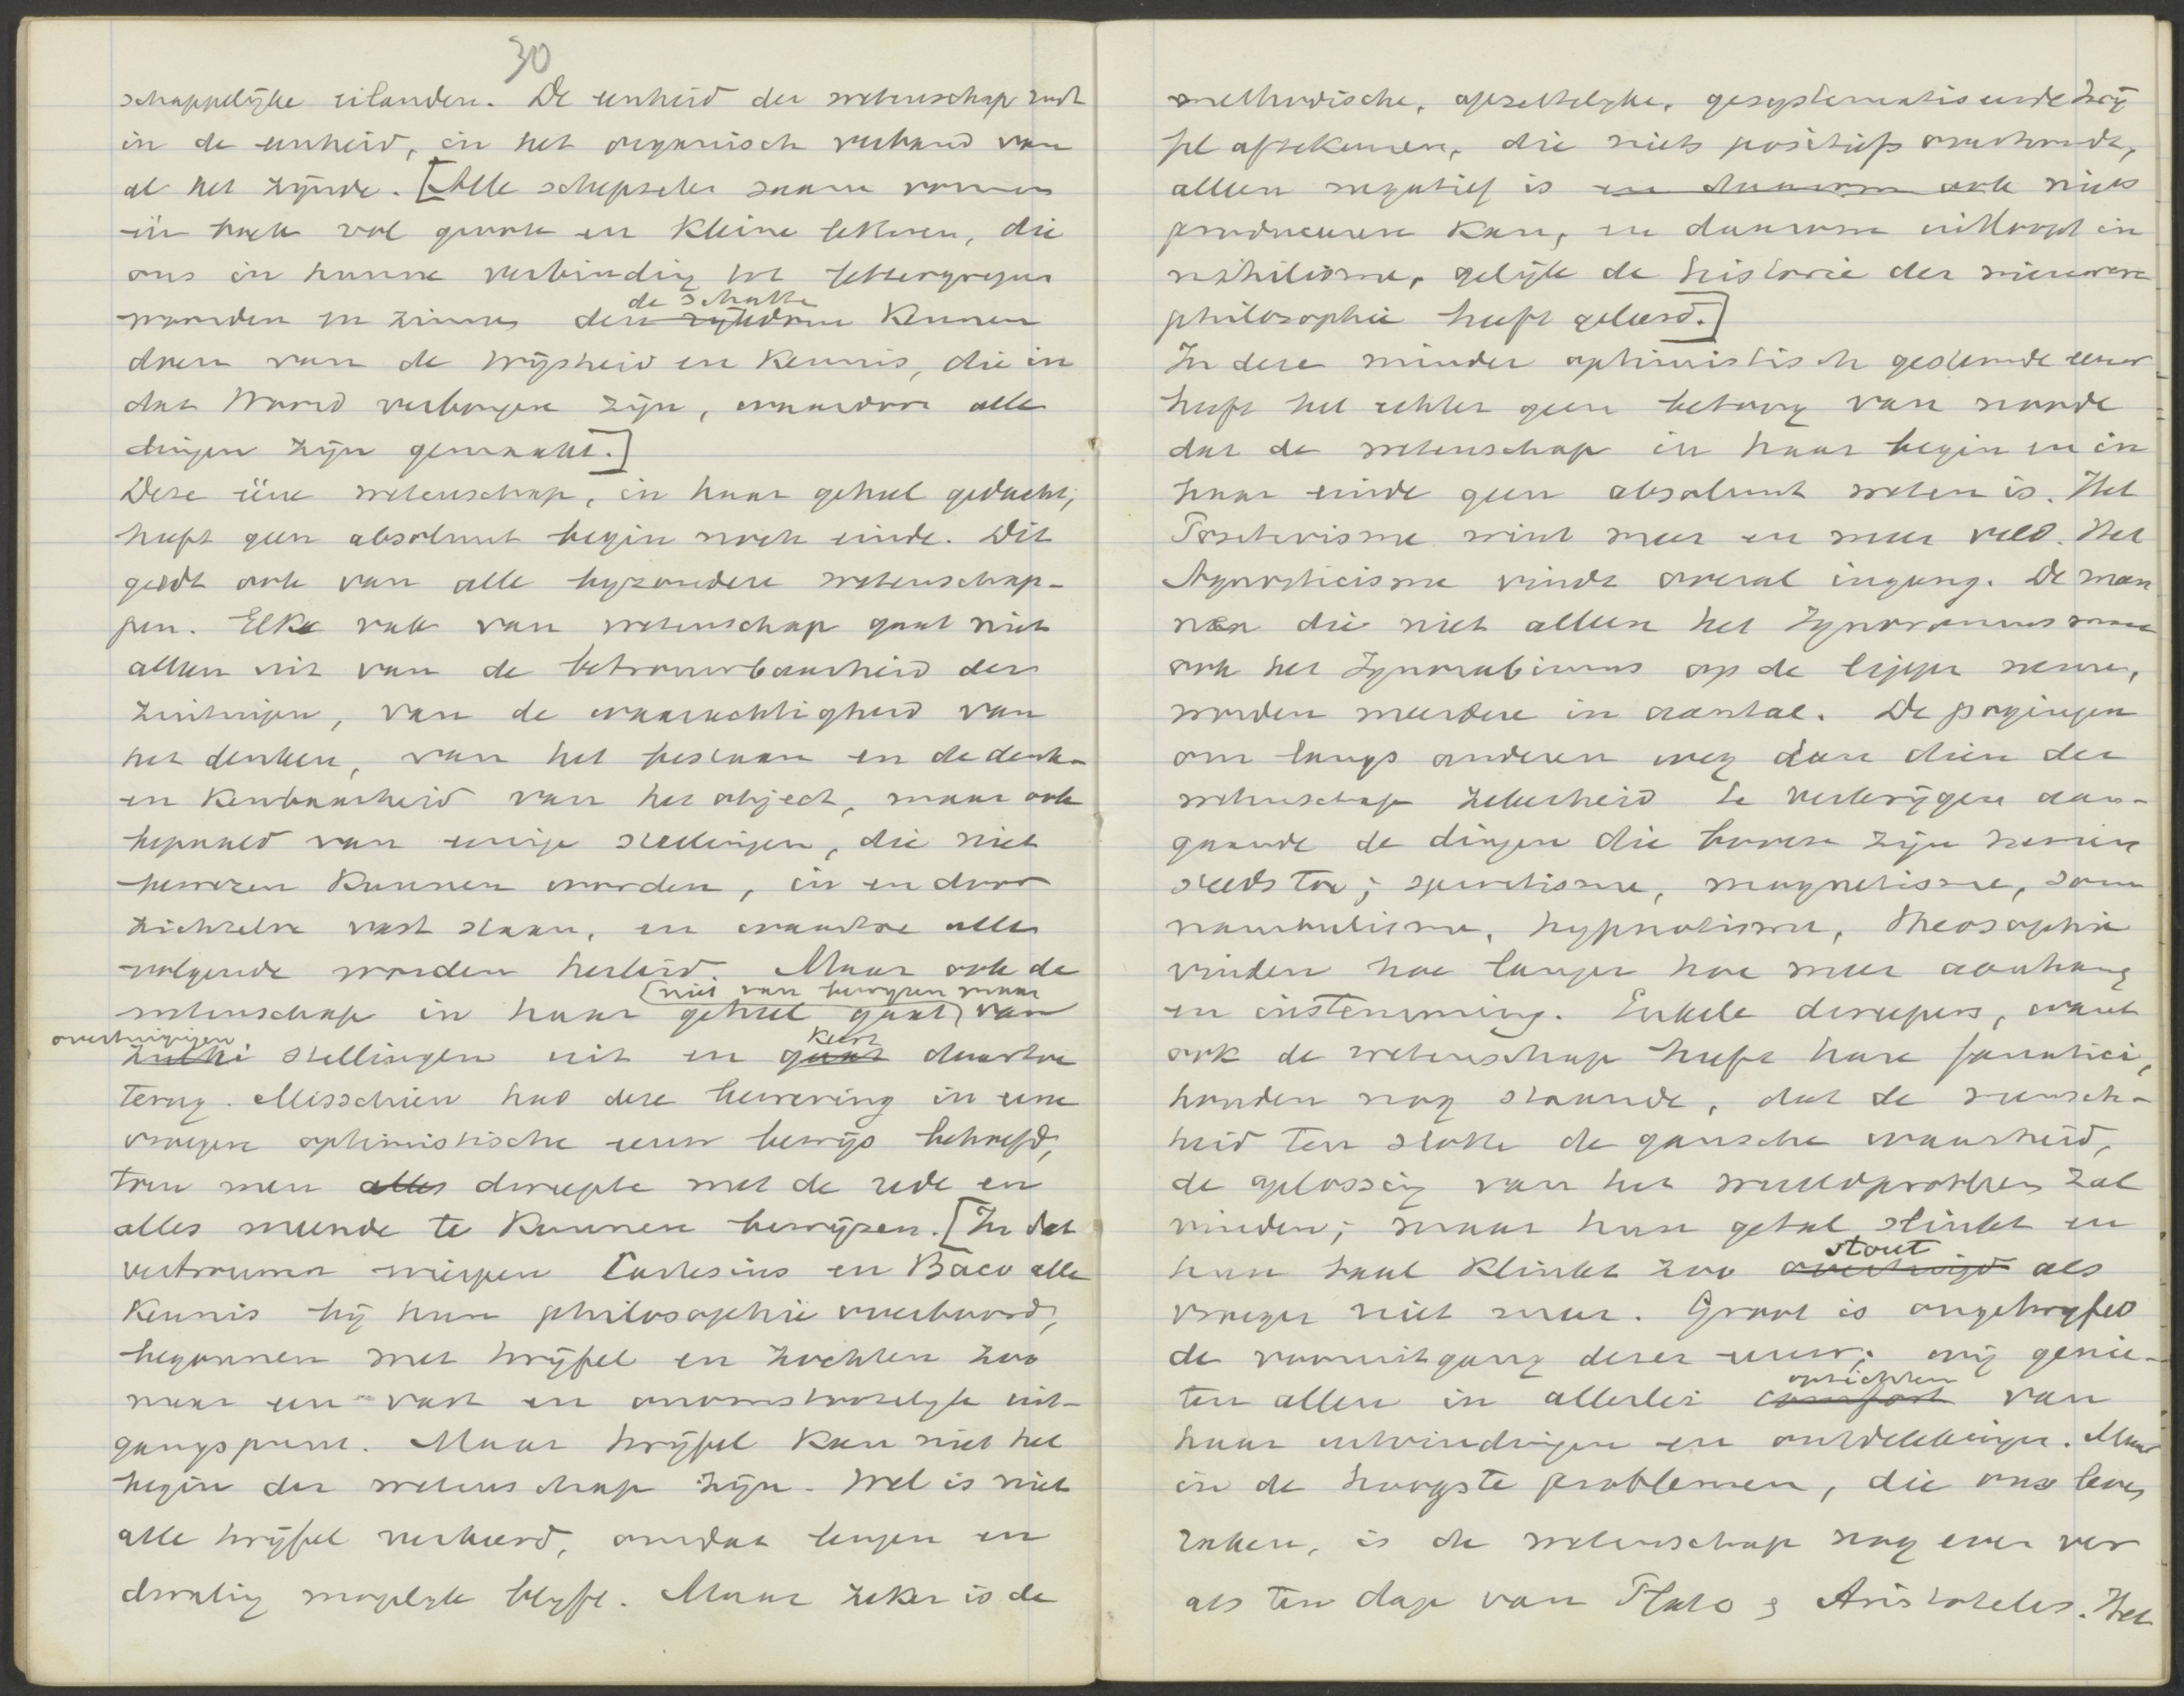 30
schappelijke eilanden. De eenheid der wetenschap rust
in de eenheid, in het organisch verband van
al het zijnde. [Alle schepselen saam vormen
één boek vol groote en kleine letteren, die
ons in hunne verbinding tot lettergrepen
de schatten
woorden en zinnen den rijkdom kennen
doen van de wijsheid en kennis, die in
dat Woord verborgen zijn, waardoor alle
dingen zijn gemaakt.]
Deze ééne wetenschap, in haar geheel gedacht,
heeft geen absoluut begin noch einde. Dit
geldt ook van alle byzondere wetenschap-
pen. Elke vak van wetenschap gaat niet
alleen uit van de betrouwbaarheid der
zintuigen, van de waarachtigheid van
het denken, van het bestaan en de denk-
en kenbaarheid van het object, maar ook
bepaald van eenige stellingen, die niet
bewezen kunnen worden, in en door
zichzelve vast staan, en waartoe alle
volgende worden herleid. Maar ook de
(niet van bewyzen maar
wetenschap in haar geheel gaat) van
overtuigingen
zulke stellingen uit en gaat daartoe
keert
terug. Misschien had deze bewering in eene
vroegere optimistische eeuw bewijs behoefd,
toen men alles dweepte met de rede en
alles meende te kunnen bewijzen. [In dat
vertrouwen wierpen Cartesius en Baco alle
kennis bij hun philosophie overboord,
begonnen met twijfel en zochten zoo
naar een vast en onomstootelyk uit-
gangspunt. Maar twijfel kan niet het
begin der wetenschap zijn. Wel is niet
alle twijfel verkeerd, omdat leugen en
dwaling mogelyk blyft. Maar zeker is de
methodische, opzettelyke, gesystematiseerde twij
fel aftekeuren, die niets positiefs onderhoudt,
alleen negatief is en daarom ook niets
produceeren kan, en daarom uitloopt in
nihilisme, gelijk de historie der nieuwere
philosophie heeft geleerd.]
In deze minder optimistisch gestemde eeuw
heeft het echter geen betoog van noode
dat de wetenschap in haar begin en in
haar einde geen absoluut weten is. Het
Positivisme wint meer en meer veld. Het
Agnosticisme vindt overal ingang. De man
nen die niet alleen het Ignoramus maar
ook het Ignorabimus op de lippen nemen,
worden meerdere in aantal. De pogingen
om langs anderen weg dan dien der
wetenschap zekerheid te verkrijgen aan-
gaande de dingen die boven zijn nemen
steeds toe; spiritisme, magnetisme, som
nambulisme, hypnotisme, theosophie
vinden hoe langer hoe meer aanhang
en instemming. Enkele dweepers, want
ook de wetenschap heeft hare fanatici,
houden nog staande, dat de mensch-
heid ten slotte de gansche waarheid,
de oplossing van het wereldprobleem zal
vinden; maar hun getal slinkt en
stout
hun taal klinkt zoo overtuigd als
vroeger niet meer. Groot is ongetwyfeld
de vooruitgang dezer eeuw; wij genie-
opzichten
ten allen in allerlei comfort van
haar uitvindingen en ontdekkingen. Maar
in de hoogste problemen, die ons leven
raken, is de wetenschap nog even ver
als ten dage van Plato & Aristoteles. Het